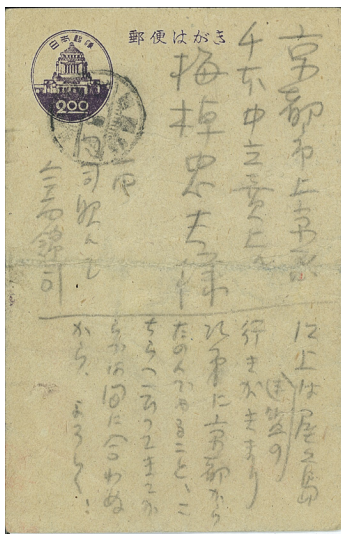 郵便はがき
日本郵便
2.00
京都市上京区
千本中立売上ル
梅棹忠夫様
今西錦司
川上は屋久島
行きがきまり
次第に京都から
たのんでやること、こ
ちらへ云ってきてか
らでは間に合わぬ
から、よろしく！